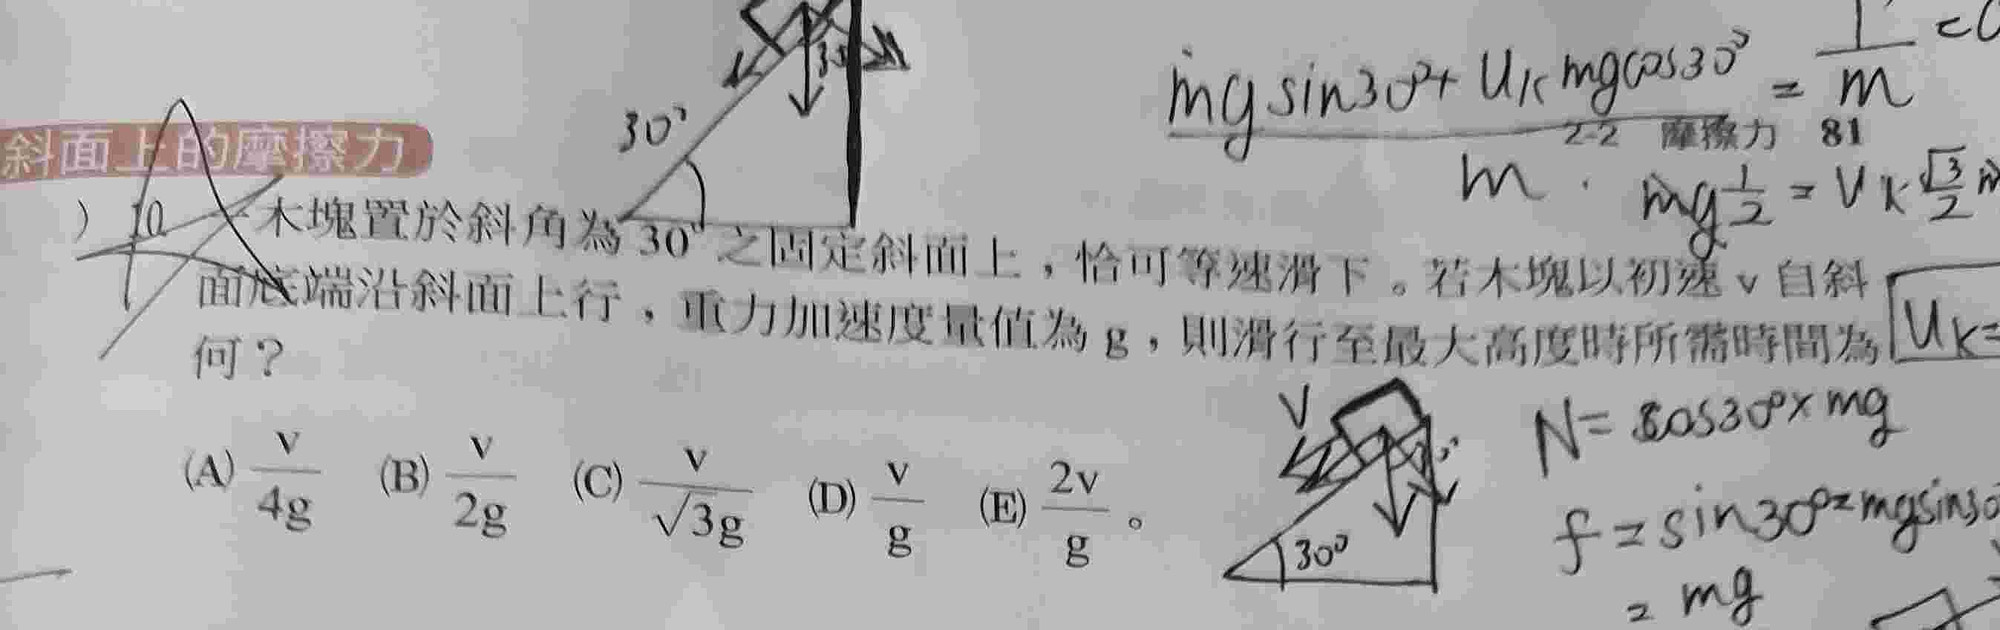 mg sin30°+ UK mg cos30° = 
m
2-2 摩擦力 81
斜面上的摩擦力
30°
30
m
mg 1/2 = UK √3/2 m
) 10. 一木塊置於斜角為30°之固定斜面上,恰可等速滑下。若木塊以初速 v 自斜
面底端沿斜面上行,重力加速度量值為 g,則滑行至最大高度時所需時間為
何?
UK=
(A) v/4g (B) v/2g (C) v/√3g (D) v/g (E) 2v/g。
V
30°
N= cos30°× mg
f = sin30°= mg sin30
= mg